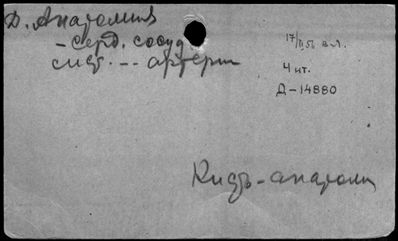 Д. Анатомия
- Серд. сосуд
сист. -- артерии
17/II,56 вл.
4 чт.
Д-14880
анатом